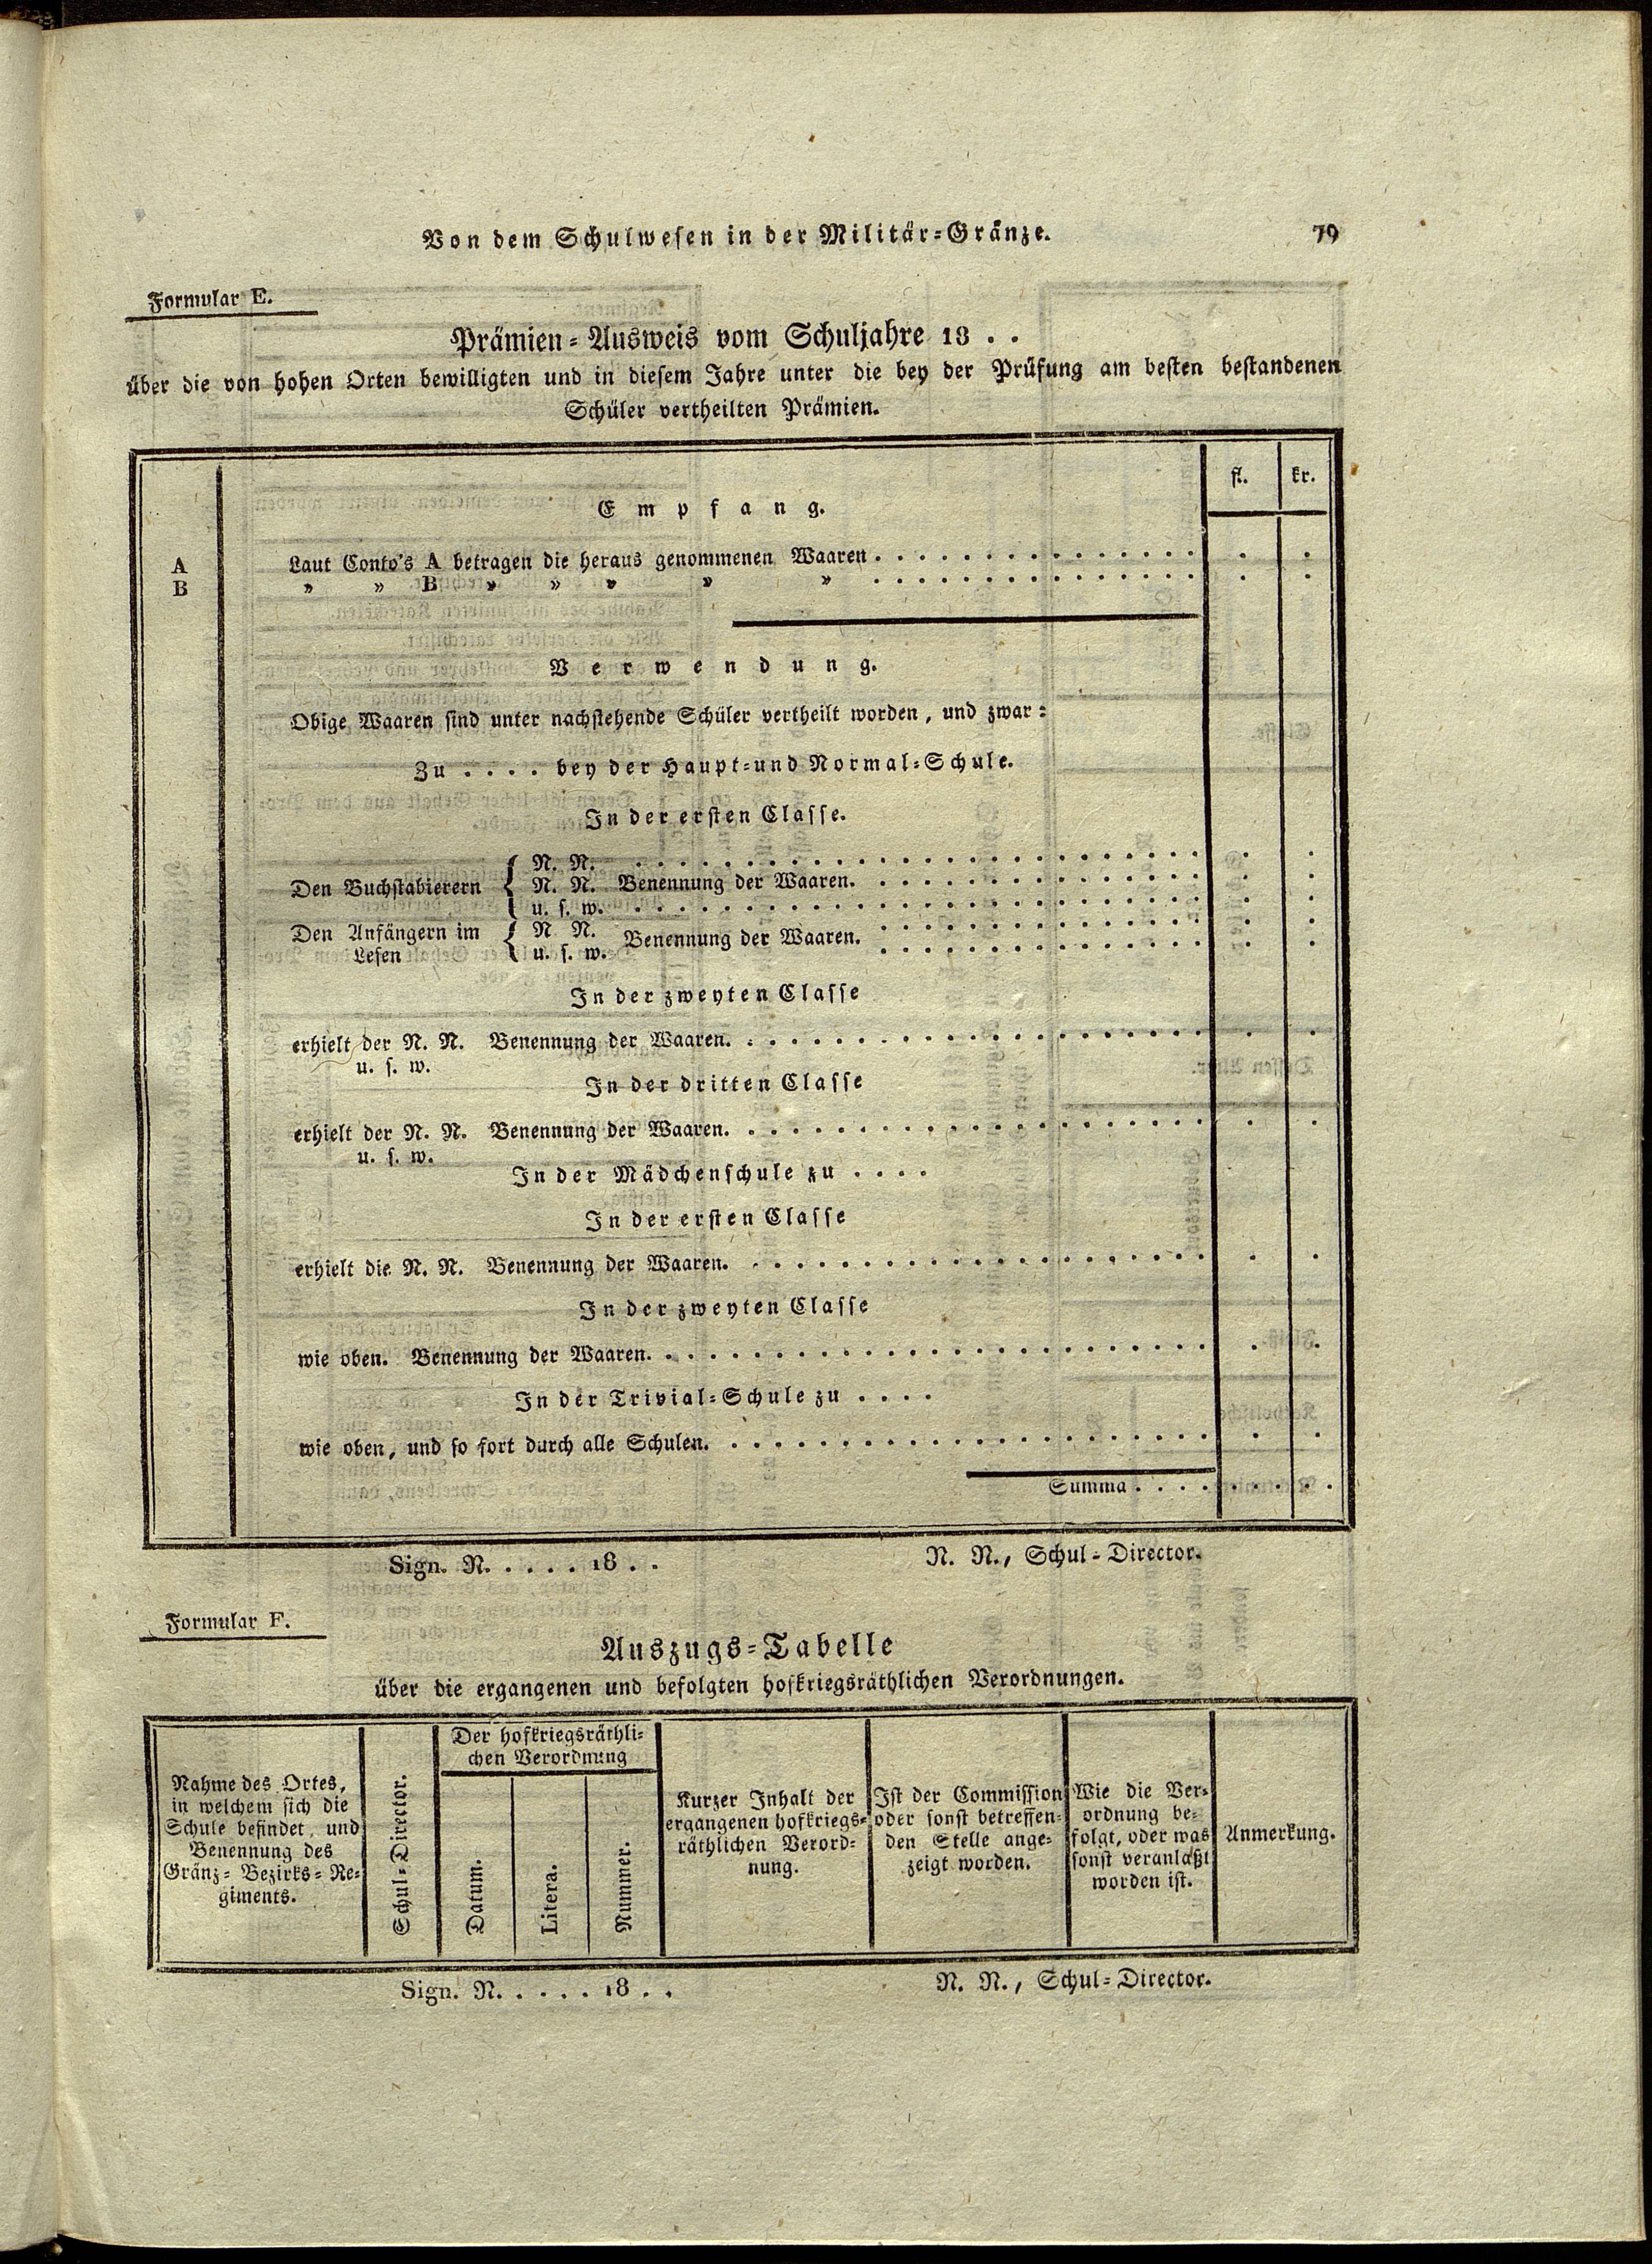 Von dem Schulwesen in der Militär=Gränze. 79
Formular E.
Prämien=Ausweis vom Schuljahre 18 . .
über die von hohen Orten bewilligten und in diesem Jahre unter die bey der Prüfung am besten bestandenen
Schüler vertheilten Prämien.
fl. kr.
Empfang.
A Laut Conto's A betragen die heraus genommenen Waaren . . . . . . . . . . . . . . . . .
B » » B » » » » » . . . . . . . . . . . . . . . . .
Verwendung.
Obige Waaren sind unter nachstehende Schüler vertheilt worden, und zwar:
Zu . . . . bey der Haupt=und Normal=Schule.
In der ersten Classe.
N. N. . . . . . . . . . . . . . . . . . . . . . . . . .
Den Buchstabierern { N. N. Benennung der Waaren. . . . . . . . . . . . . . . . .
u. s. w. . . . . . . . . . . . . . . . . . . . . . . . . .
Den Anfängern im { N N. Benennung der Waaren. . . . . . . . . . . . . . . .
Lesen u. s. w. . . . . . . . . . . . . . . .
In der zweyten Classe
erhielt der N. N. Benennung der Waaren. . . . . . . . . . . . . . . . . . . . . . .
u. s. w.
In der dritten Classe
erhielt der N. N. Benennung der Waaren. . . . . . . . . . . . . . . . . . . . . . .
u. s. w.
In der Mädchenschule zu . . . .
In der ersten Classe
erhielt die N. N. Benennung der Waaren. . . . . . . . . . . . . . . . . . . . . . .
In der zweyten Classe
wie oben. Benennung der Waaren. . . . . . . . . . . . . . . . . . . . . . . . . .
In der Trivial=Schule zu . . . .
wie oben, und so fort durch alle Schulen. . . . . . . . . . . . . . . . . . . . . . .
Summa . . . . . . . .
Sign. N. . . . . 18 . . N. N., Schul=Director.
Formular F.
Auszugs=Tabelle
über die ergangenen und befolgten hofkriegsräthlichen Verordnungen.
Nahme des Ortes,
in welchem sich die
Schule befindet, und
Benennung des
Gränz=Bezirks=Re=
giments.
Schul=Director.
Der hofkriegsräthli=
chen Verordnung
Datum.
Litera.
Nummer.
Kurzer Inhalt der
ergangenen hofkriegs=
räthlichen Verord=
nung.
Ist der Commission
oder sonst betreffen=
den Stelle ange=
zeigt worden.
Wie die Ver=
ordnung be=
folgt, oder was
sonst veranlaßt
worden ist.
Anmerkung.
Sign. N. . . . . 18 . . N. N., Schul=Director.